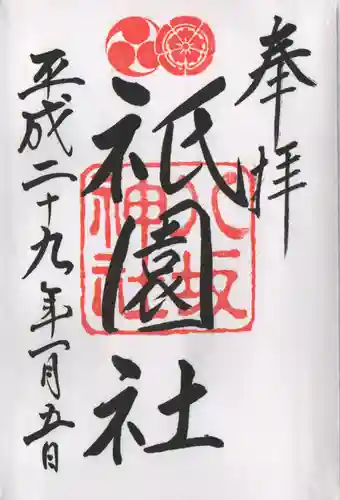 奉拝
八坂
神社
祇園社
平成二十九年一月五日